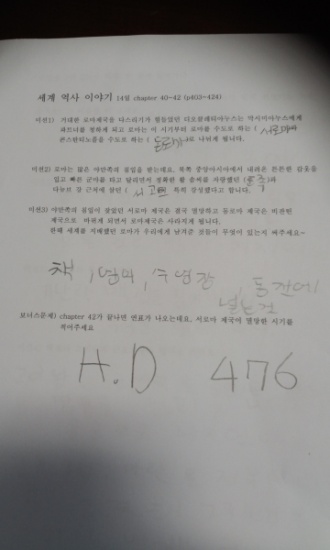 세계 역사 이야기 14일 chapter 40~42 (p403~424)
미션1) 거대한 로마제국을 다스리기가 힘들었던 디오클레티아누스는 막시미아누스에게
파트너를 청하게 되고 로마는 이 시기부터 로마를 수도로 하는 ( 서로마
콘스탄티노플을 수도로 하는 ( 동로마 나뉘게 됩니다.
미션2) 로마는 많은 야만족의 침입을 받는데요, 특히 중앙아시아에서 내려온 튼튼한 갑옷을
입고 빠른 군마를 타고 달리면서 정확한 활 솜씨를 자랑했던 (훈족)과
다뉴브 강 근처에 살던 ( 서고트 특히 강성했다고 합니다.
미션3) 야만족의 침입이 잦았던 서로마 제국은 결국 멸망하고 동로마 제국은 비잔틴
제국으로 바뀌게 되면서 로마제국은 사라지게 됩니다.
한때 세계를 지배했던 로마가 우리에게 남겨준 것들이 무엇이 있는지 써주세요~
책, 영어, 수영장, 동전에
넣는 것
보너스문제) chapter 42가 끝나면 연표가 나오는데요, 서로마 제국이 멸망한 시기를
적어주세요
H.D 476